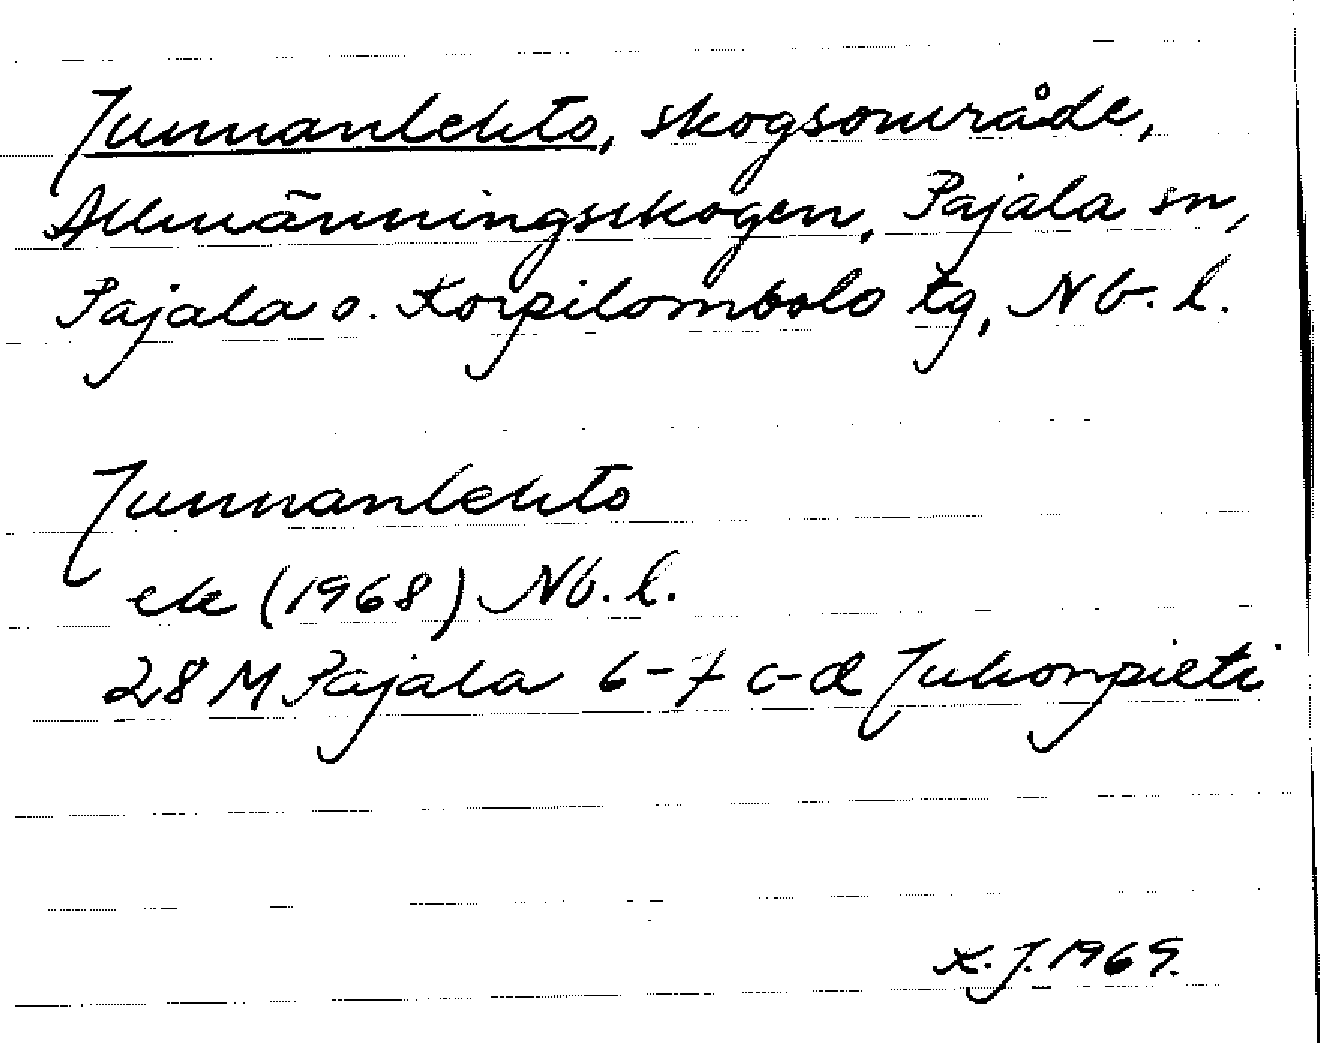 Junnanlehto, skogsområde,
Allmänningsskogen, Pajala sn,
Pajala o. Korpilombolo tg, Nb. l.
Junnanlehto
ek (1968) Nb. l.
28 M Pajala 6-7 c-d Juhonpieti
K. J. 1969.